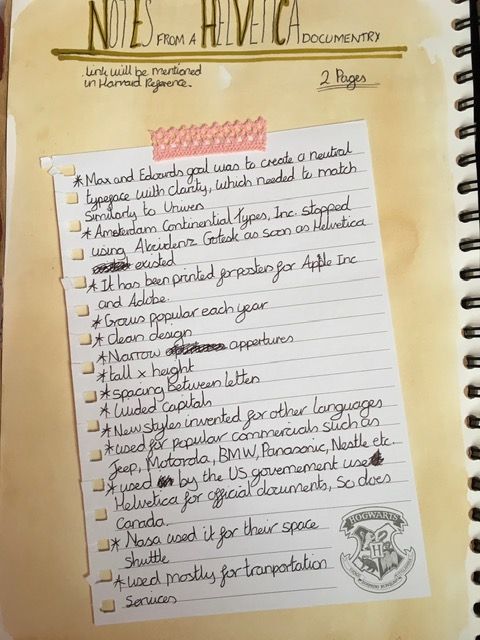 NOTES FROM A HELVETICA DOCUMENTRY
. Link will be mentioned
in Harvard Reference.
2 Pages
* Max and Edouards goal was to create a neutral
typeface with clarity, which needed to match
Similarly to Univers
* Amsterdam Continental Types, Inc. stopped
using Akzidenz Gotesk as soon as Helvetica
existed
* It has been printed for posters for Apple Inc
and Adobe.
* Grows popular each year
* clean design
* Narrow appertures
* tall x height
* spacing between letters
* Wided Capitals
* New styles invented for other languages
* used for popular commercials such as
Jeep, Motorola, BMW, Panasonic, Nestle etc.
* used by the US governement use
Helvetica for official documents, So does
Canada.
* Nasa used it for their space
shuttle
* used mostly for tranportation
Services
HOGWARTS
H